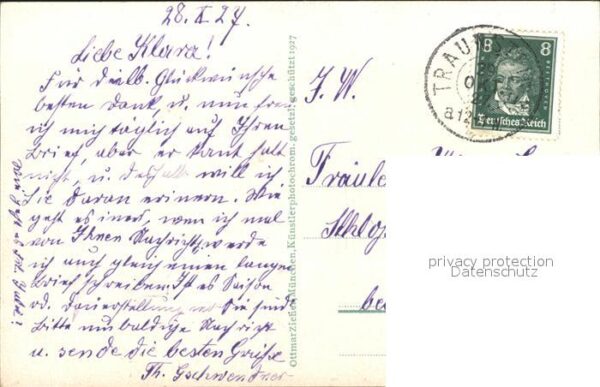 28. X. 27.
Liebe Klara!
Für die lb. Glückwünsche
besten Dank, u. nun freu
ich mich täglich auf Ihren
Brief, aber er kommt halt
nicht, u. deshalb will ich
Sie daran erinern. Wie
geht es immer, wen ich mal
von Ihnen Nachricht, werde
ich auch gleich einen langen
Brief schreiben. Ist es Saison
od. Dauerstellung wo Sie sind
Bitte um baldige Nachricht
u. sende die besten Grüße
Th. Gschwendner
Ottmar Zieher, München, Künstlerphotochrom, gesetzl. geschützt 1927
J. W.
Fräule
Schlo
be
TRAUN
8 8
Deutsches Reich
privacy protection
Datenschutz